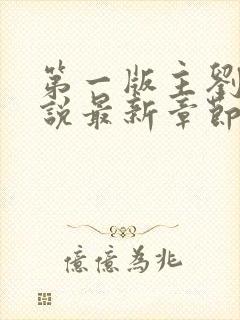 第一版主劉
說最新章節
億億為兆